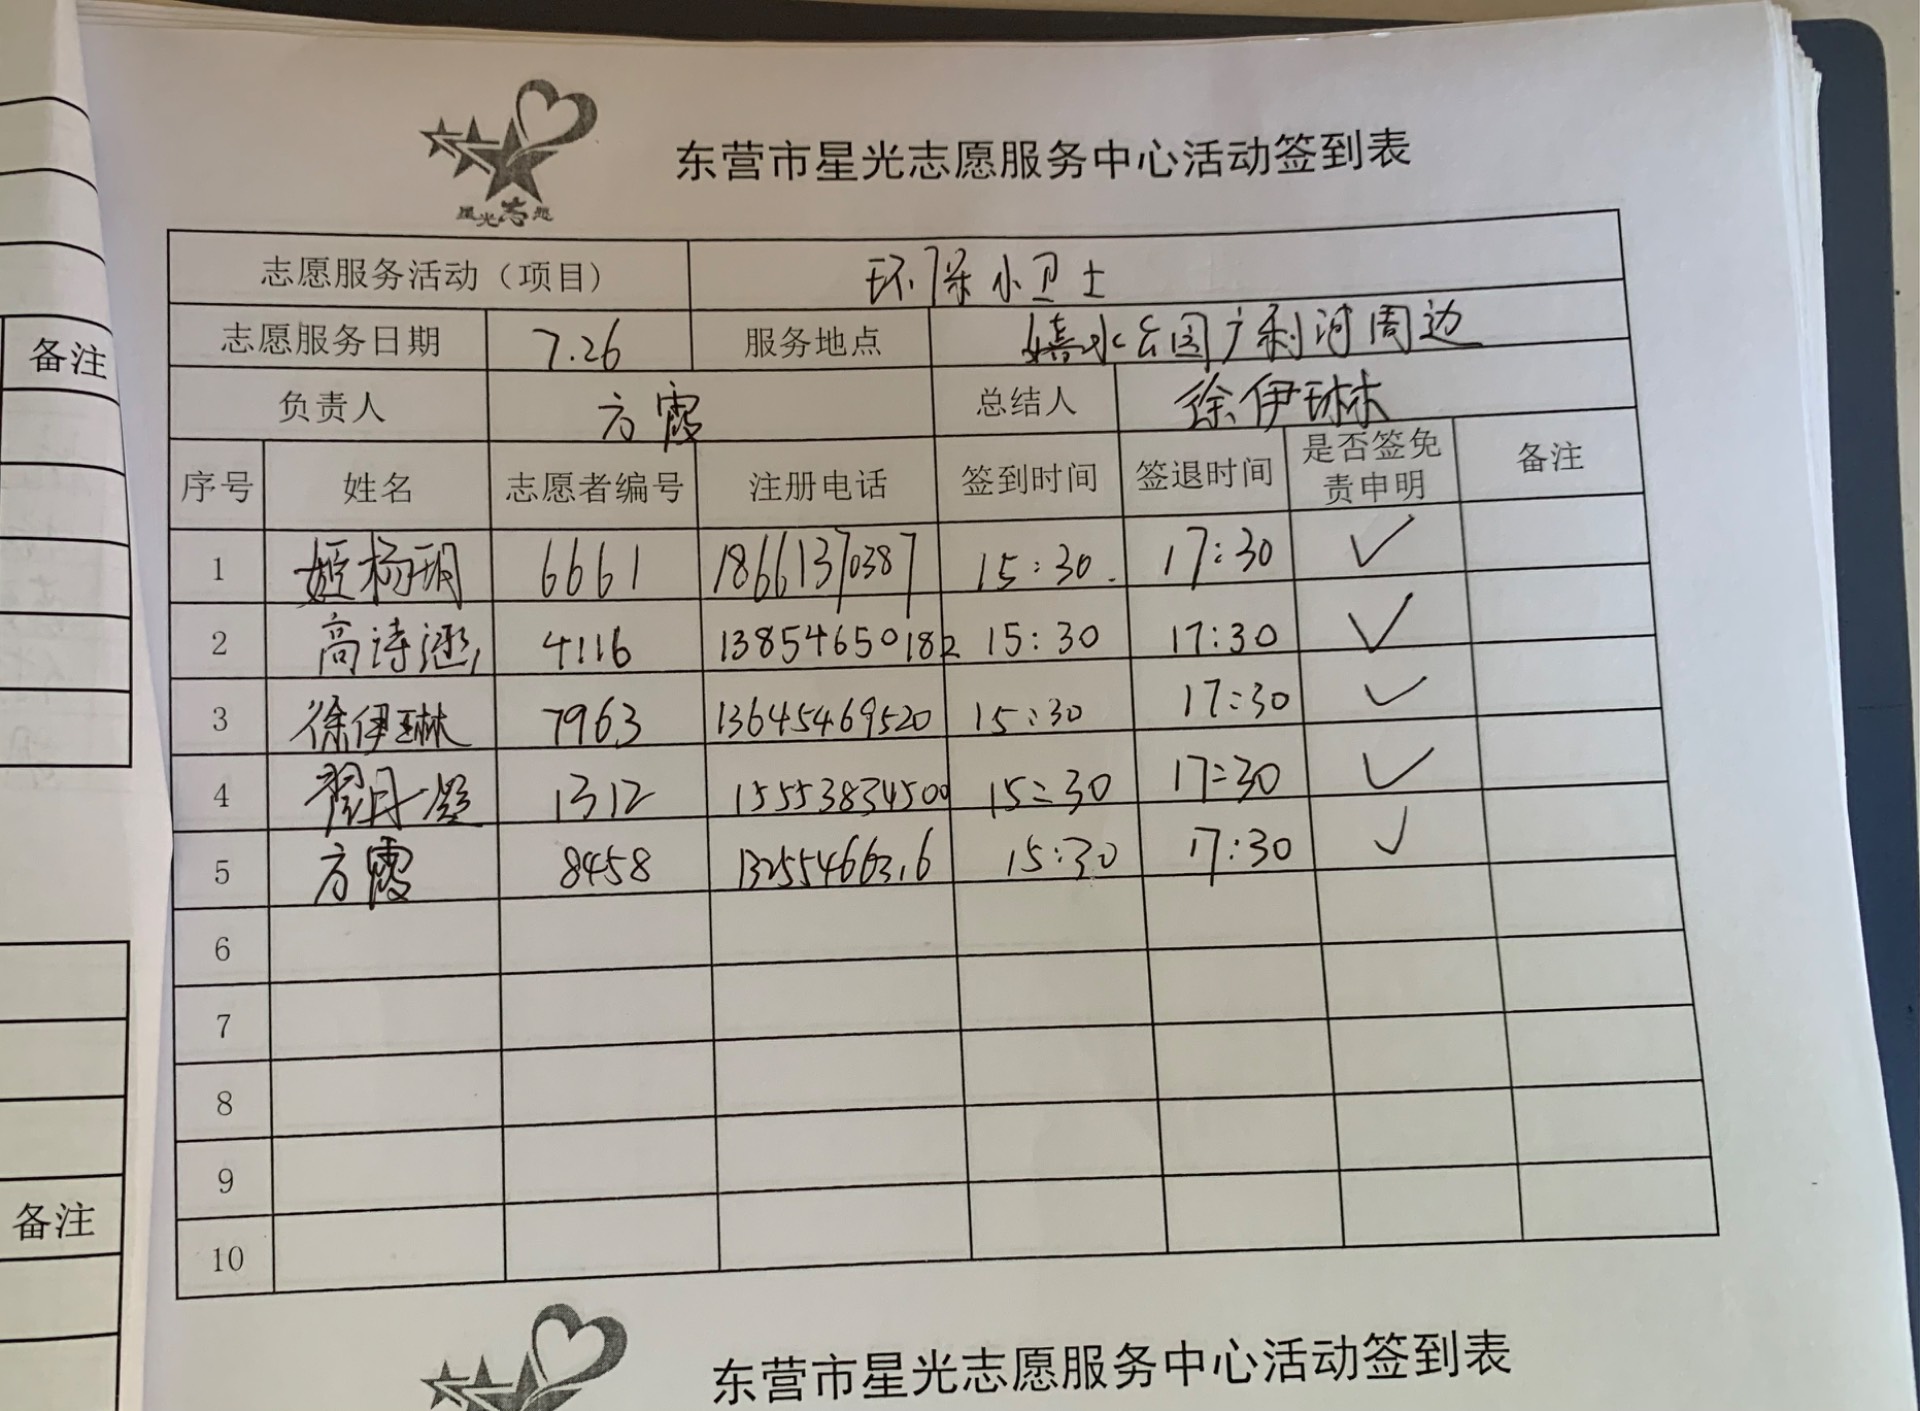 星光志愿
东营市星光志愿服务中心活动签到表
志愿服务活动（项目） 环保小卫士
志愿服务日期 7.26 服务地点 嬉水公园广利河周边
负责人 方霞 总结人 徐伊琳
序号 姓名 志愿者编号 注册电话 签到时间 签退时间 是否签免责申明 备注
1 姬杨玥 6661 18661370387 15:30 17:30 ✓
2 高诗涵 4116 13854650182 15:30 17:30 ✓
3 徐伊琳 7963 13645469520 15:30 17:30 ✓
4 1312 15553834500 15:30 17:30 ✓
5 方霞 8458 13255466316 15:30 17:30 ✓
6
7
8
9
10
东营市星光志愿服务中心活动签到表
备注
备注